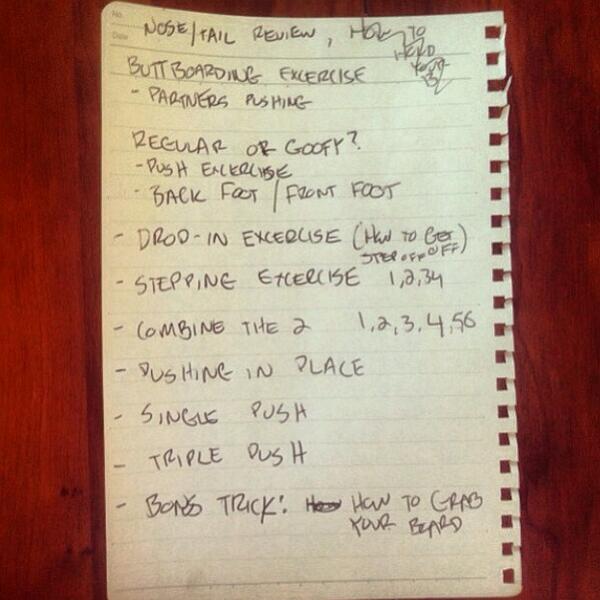 No.
Date
NOSE/TAIL REVIEW, HOW TO HOLD YOUR
BUTTBOARDING EXCERCISE
- PARTNERS PUSHING
REGULAR OR GOOFY?
- PUSH EXCERCISE
- BACK FOOT / FRONT FOOT
- DROP-IN EXCERCISE (HOW TO GET OFF)
STEP OFF
- STEPPING EXCERCISE 1,2,3,4
- COMBINE THE 2 1,2,3,4,5,6
- PUSHING IN PLACE
- SINGLE PUSH
- TRIPLE PUSH
- BONUS TRICK: HOW TO GRAB
YOUR BOARD